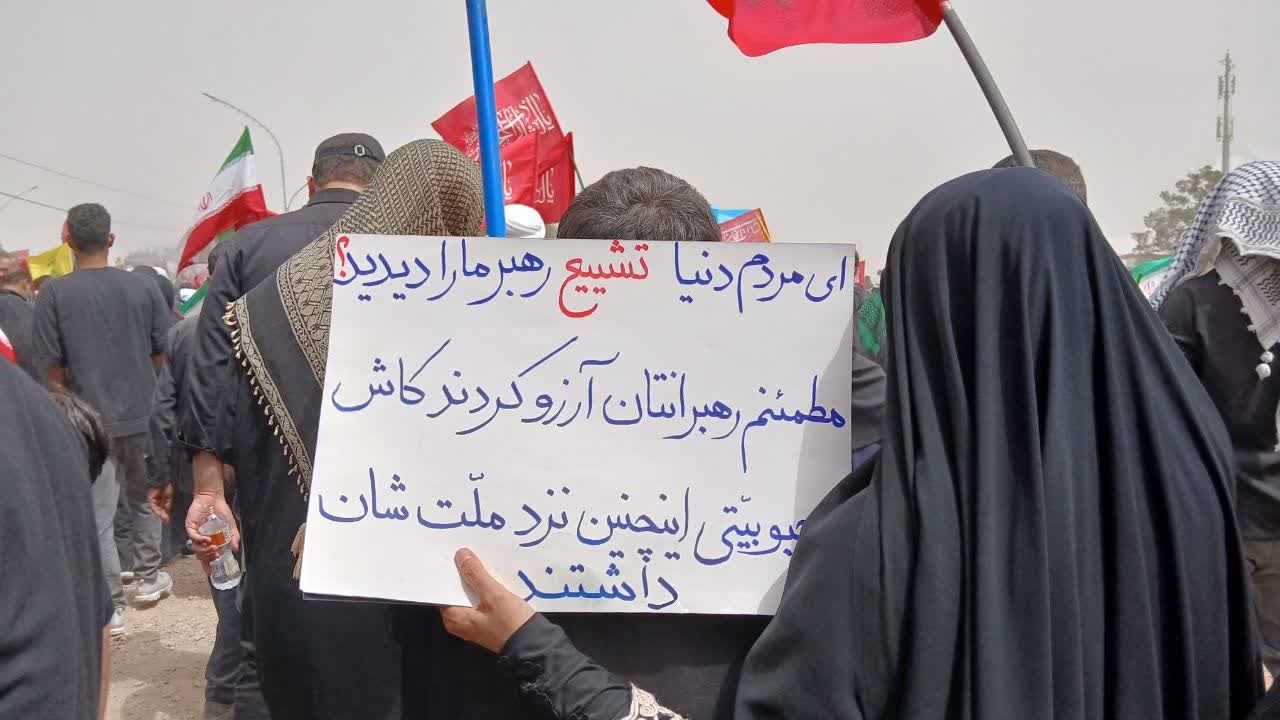 ای مردم دنیا تشییع رهبر ما را دیدید؟
مطمئنم رهبرانتان آرزو کردند کاش
اینچنین نزد ملّت شان
داشتند